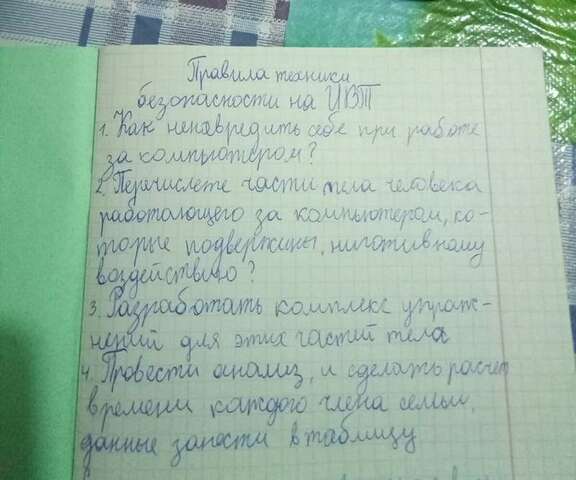 Правила техники
безопасности на ИВТ
1. Как ненавредить себе при работе
за компьютером?
2. Перечислете части тела человека
работающего за компьютером, ко-
торые подвержины, ниготивному
воздействию?
3. Разработать комплекс упраж-
нений для этих частей тела
4. Провести анализ, и сделать расчет
времени каждого члена семьи,
данные занести в таблицу